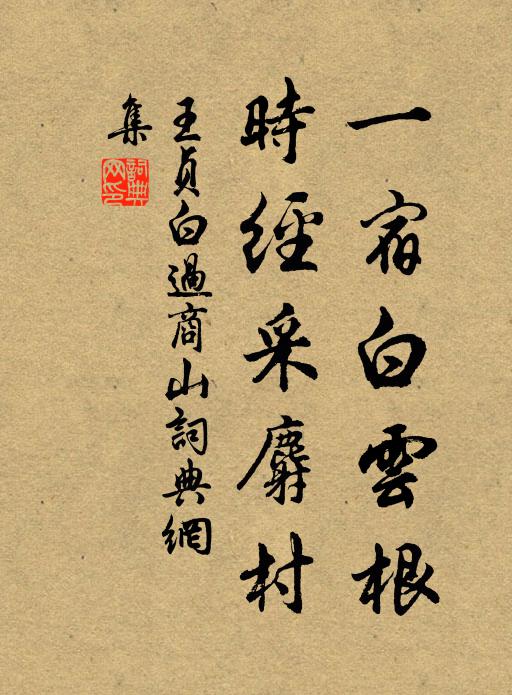 一宿白雲根
時經采麝村
王貞白過商山詞典網
集
詞典
网印